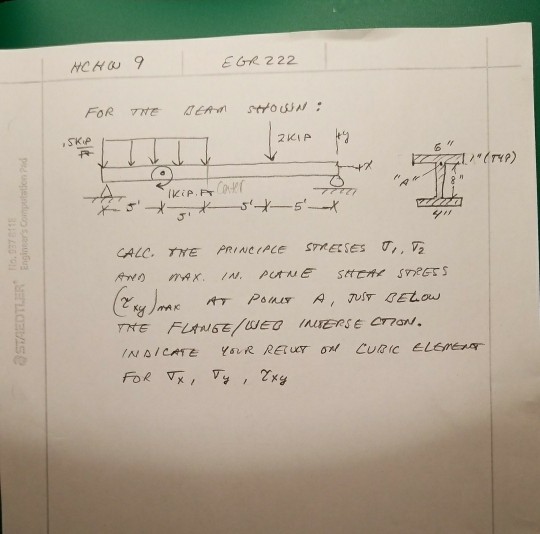 HCHW 9 EGR 222
FOR THE BEAM SHOWN:
.5KIP/FT 2KIP +y +X
1KIP.FT Cover
5' 5' 5' 5'
6" 1" (TYP) "A" 8" 4"
CALC. THE PRINCIPLE STRESSES σ1, σ2
AND MAX. IN. PLANE SHEAR STRESS
(τxy)MAX AT POINT A, JUST BELOW
THE FLANGE/WEB INTERSECTION.
INDICATE YOUR RESULT ON CUBIC ELEMENT
FOR σx, σy, τxy
STAEDTLER No. 937 811E
Engineer's Computation Pad